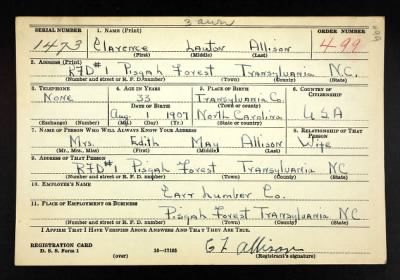 SERIAL NUMBER 1. NAME (Print) ORDER NUMBER
1473 Clarence Lawton Allison 499
(First) (Middle) (Last)
2. ADDRESS (Print)
RFD#1 Pisgah Forest Transylvania N.C.
(Number and street or R. F. D. number) (Town) (County) (State)
3. TELEPHONE 4. AGE IN YEARS 5. PLACE OF BIRTH 6. COUNTRY OF CITIZENSHIP
None 33 Transylvania Co.
DATE OF BIRTH (Town or county)
Aug. 1 1907 North Carolina USA
(Exchange) (Number) (Mo.) (Day) (Yr.) (State or country)
7. NAME OF PERSON WHO WILL ALWAYS KNOW YOUR ADDRESS 8. RELATIONSHIP OF THAT PERSON
Mrs. Edith May Allison Wife
(Mr., Mrs., Miss) (First) (Middle) (Last)
9. ADDRESS OF THAT PERSON
RFD#1 Pisgah Forest Transylvania NC
(Number and street or R. F. D. number) (Town) (County) (State)
10. EMPLOYER'S NAME
Carr Lumber Co.
11. PLACE OF EMPLOYMENT OR BUSINESS
Pisgah Forest Transylvania NC
(Number and street or R. F. D. number) (Town) (County) (State)
I AFFIRM THAT I HAVE VERIFIED ABOVE ANSWERS AND THAT THEY ARE TRUE.
REGISTRATION CARD
D. S. S. Form 1 16—17105 CL Allison
(over) (Registrant's signature)